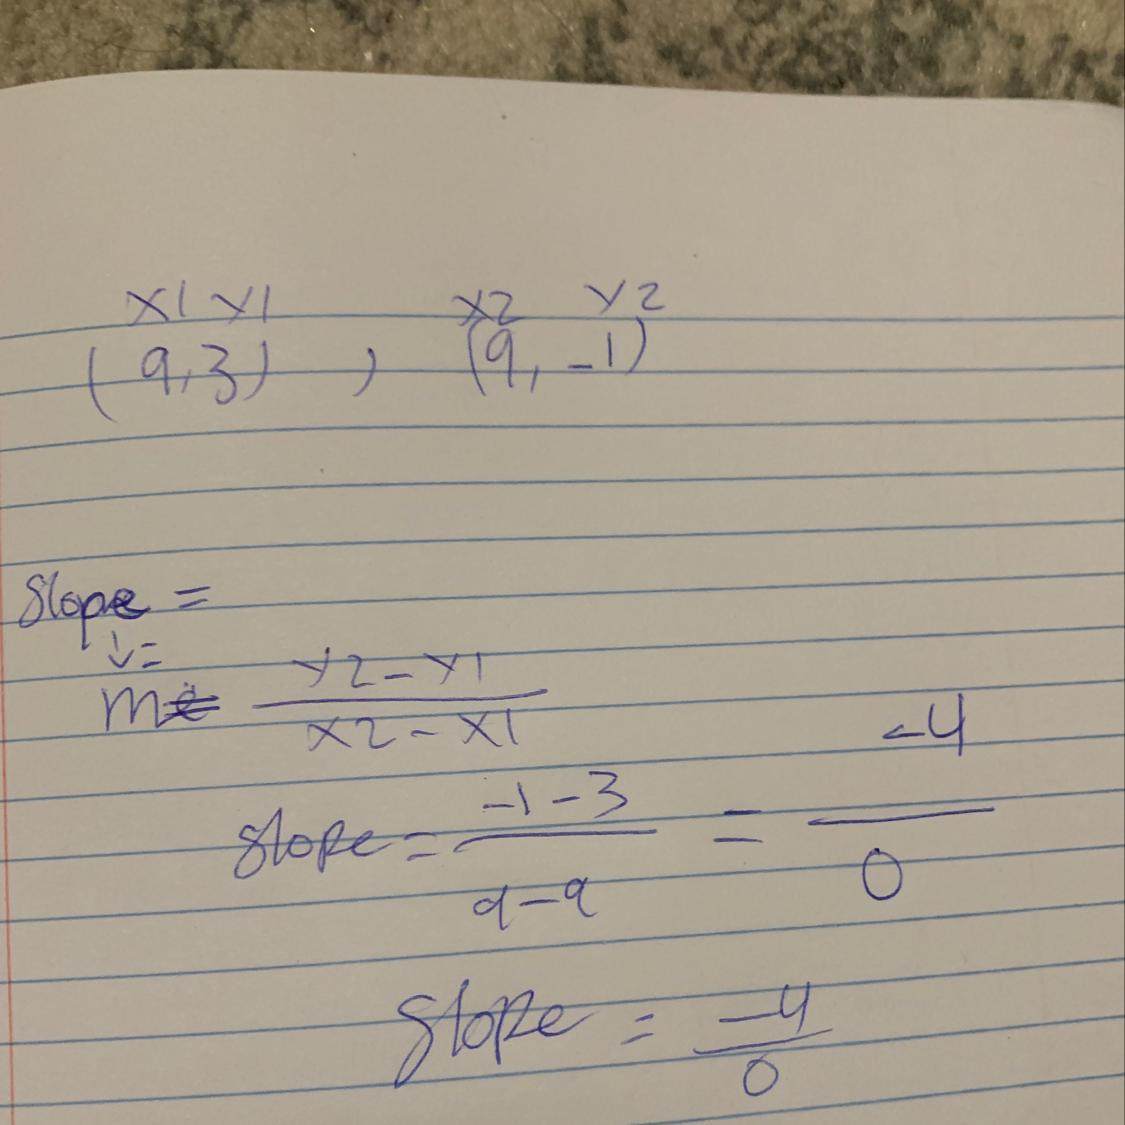 x1 y1 x2 y2
(9,3) , (9, -1)
Slope =
↓=
m= y2-y1/x2-x1
slope = -1-3/9-9 = -4/0
slope = -4/0